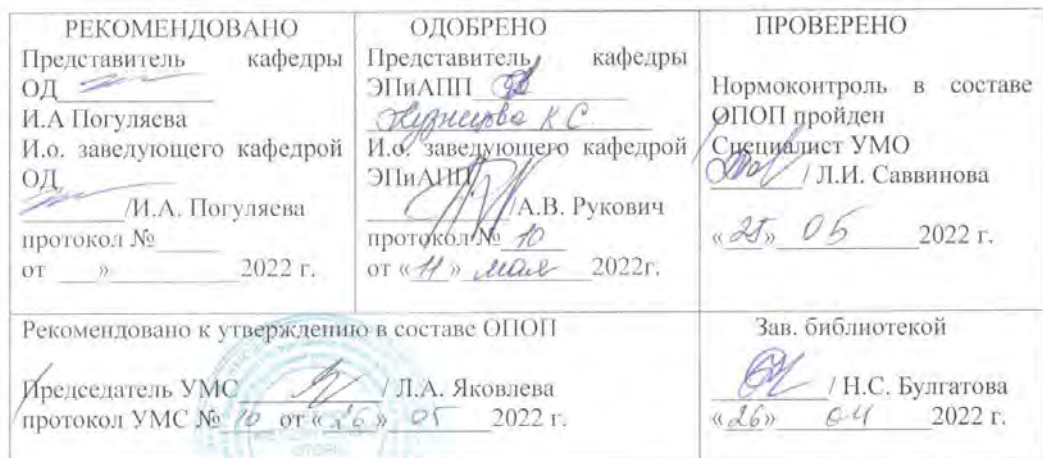 РЕКОМЕНДОВАНО
Представитель кафедры
ОД
И.А Погуляева
И.о. заведующего кафедрой
ОД
/И.А. Погуляева
протокол №
от » 2022 г.
ОДОБРЕНО
Представитель кафедры
ЭПиАПП
Кузнецова К С.
И.о. заведующего кафедрой
ЭПиАПП
/А.В. Рукович
протокол № 10
от «11» мая 2022г.
ПРОВЕРЕНО
Нормоконтроль в составе
ОПОП пройден
Специалист УМО
/ Л.И. Саввинова
« » 05 2022 г.
Рекомендовано к утверждению в составе ОПОП
Председатель УМС / Л.А. Яковлева
протокол УМС № 10 от «26» 05 2022 г.
Зав. библиотекой
/ Н.С. Булгатова
«26» 04 2022 г.